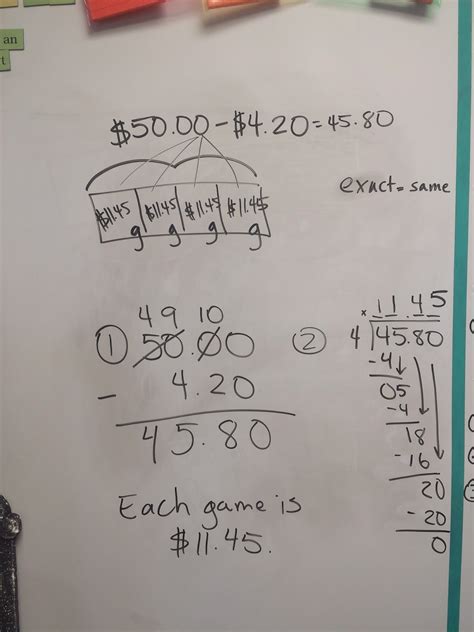 an
$50.00 - $4.20 = 45.80
$11.45 $11.45 $11.45 $11.45
g g g g
exact = same
4 9 10
① 50.00
- 4.20
45.80
②
× 11.45
4 45.80
-4
05
-4
18
-16
20
-20
0
Each game is
$11.45.